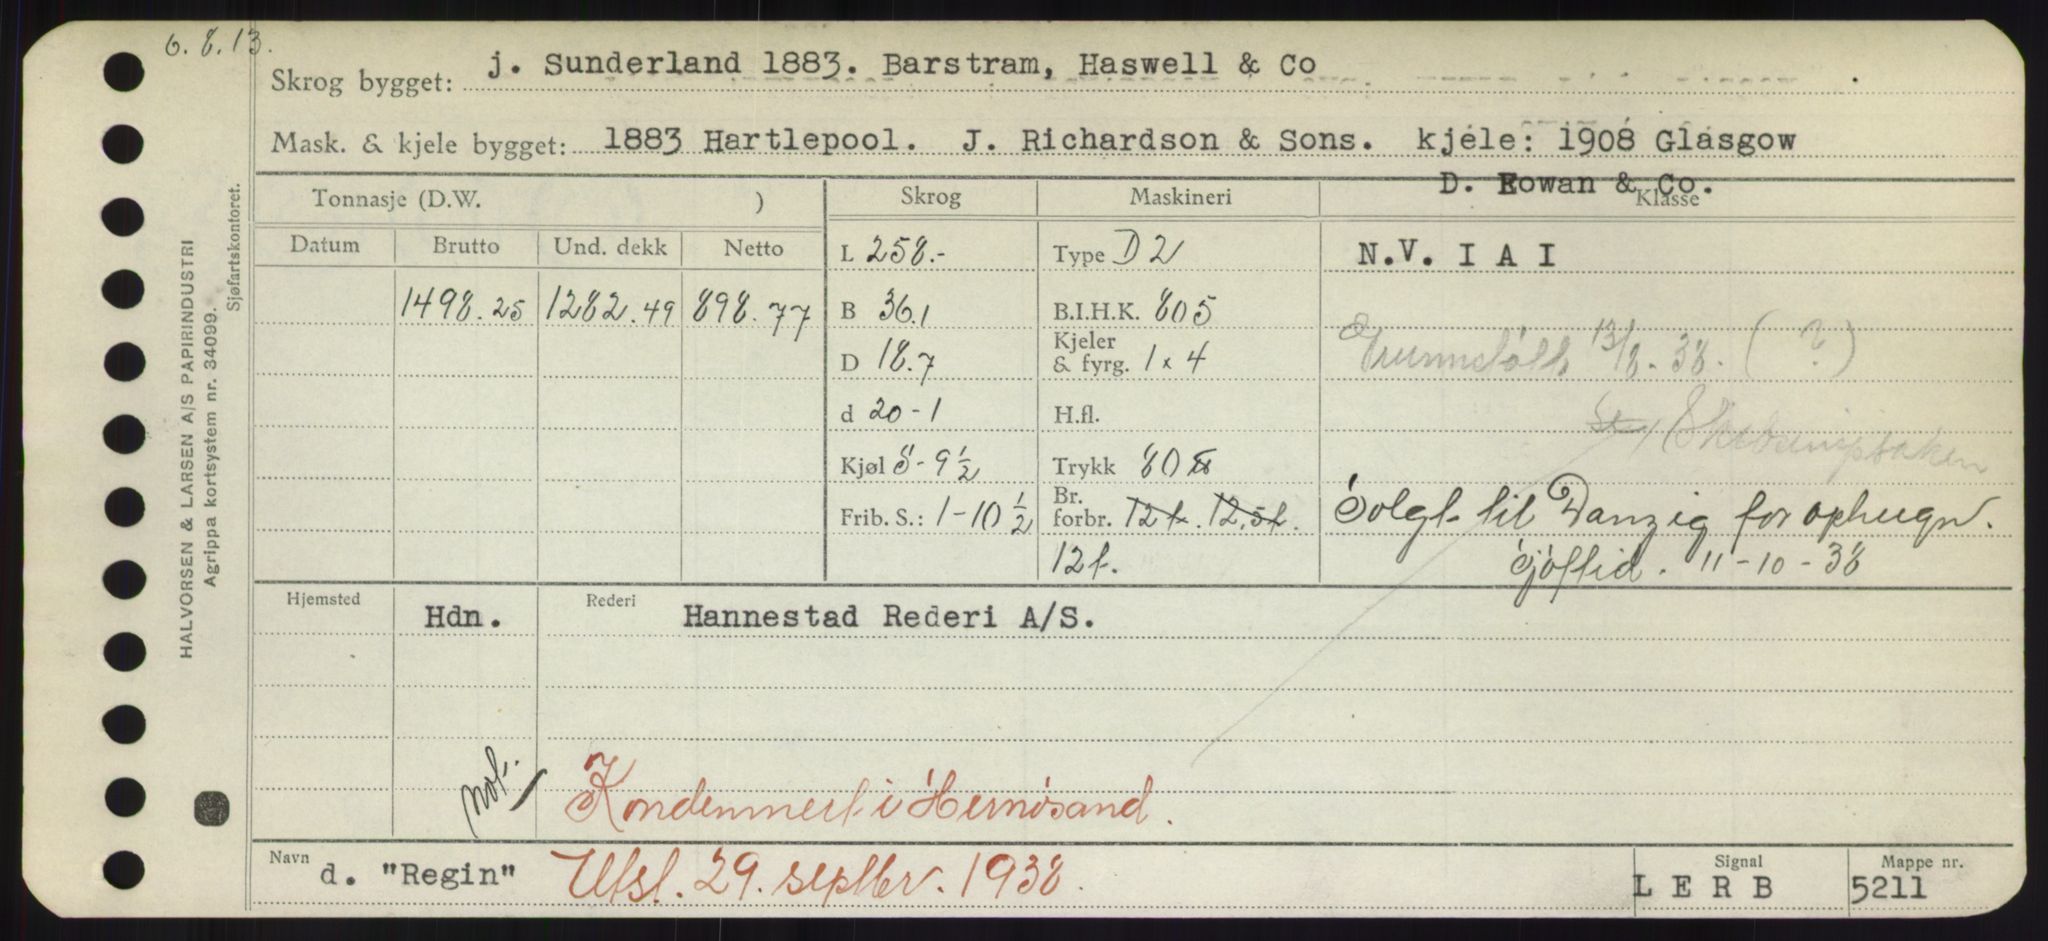 6.8.13.
Skrog bygget: j. Sunderland 1883. Barstram, Haswell & Co
Mask. & kjele bygget: 1883 Hartlepool. J. Richardson & Sons. kjele: 1908 Glasgow
D. Rowan & Co.
Tonnasje (D.W. ) Skrog Maskineri Klasse
Datum Brutto Und. dekk Netto L 258.- Type D 2 N.V. I A I
1498.25 1282.49 898.77 B 36.1 B.I.H.K. 805
D 18.7 Kjeler & fyrg. 1 x 4 13/8.38. (?)
d 20-1 H.fl.
Kjøl 8-9 1/2 Trykk 80 lb
Frib. S.: 1-10 1/2 Br. forbr. 12 t. 12,5 t. Solgt til Danzig for ophugn.
12 t. Sjøftid. 11-10-38
Hjemsted Hdn. Rederi Hannestad Rederi A/S.
not.
Kondemnert i Hernösand.
Navn d. "Regin" Utsl. 29. septbr. 1938. Signal L E R B Mappe nr. 5211
HALVORSEN & LARSEN A/S PAPIRINDUSTRI
Agrippa kortsystem nr. 34099.
Sjøfartskontoret.